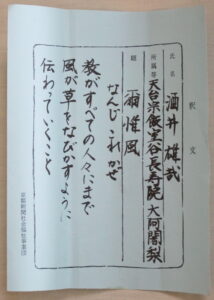 釈文
氏名 酒井雄哉
所属等 天台宗飯室谷長寿院 大阿闍梨
題 爾惟風
なんじこれかぜ
教がすべての人々にまで
風が草をなびかすように
伝わっていくごとく
京都新聞社会福祉事業団